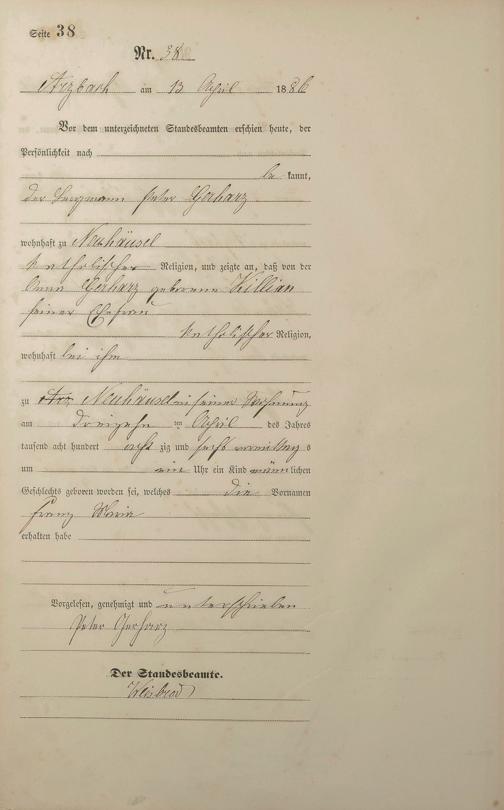 Seite 38
Nr. 38
Arzbach am 13 April 1886
Vor dem unterzeichneten Standesbeamten erschien heute, der
Persönlichkeit nach
be kannt,
der Bergmann Peter Gerharz
wohnhaft zu Neuhäusel
katholischer Religion, und zeigte an, daß von der
Anna Gerharz geborene Killian
seiner Ehefrau
katholischer Religion,
wohnhaft bei ihm
zu Arz Neuhäusel in seiner Wohnung
am dreizehn ten April des Jahres
tausend acht hundert acht zig und sechs vormittag s
um ein Uhr ein Kind männlichen
Geschlechts geboren worden sei, welches die Vornamen
Franz Maria
erhalten habe
Vorgelesen, genehmigt und unterschrieben
Peter Gerharz
Der Standesbeamte.